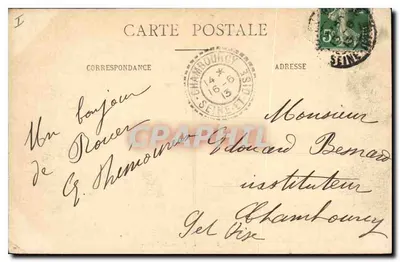 I
CARTE POSTALE
CORRESPONDANCE
ADRESSE
CHAMBOURCY
4*
16-6
13
SEINE-ET-OISE
5c
SEINE
Un bonjour
de Rouen
Monsieur
Edouard Besnard
instituteur
Chambourcy
Set Oise
Carte-Postale